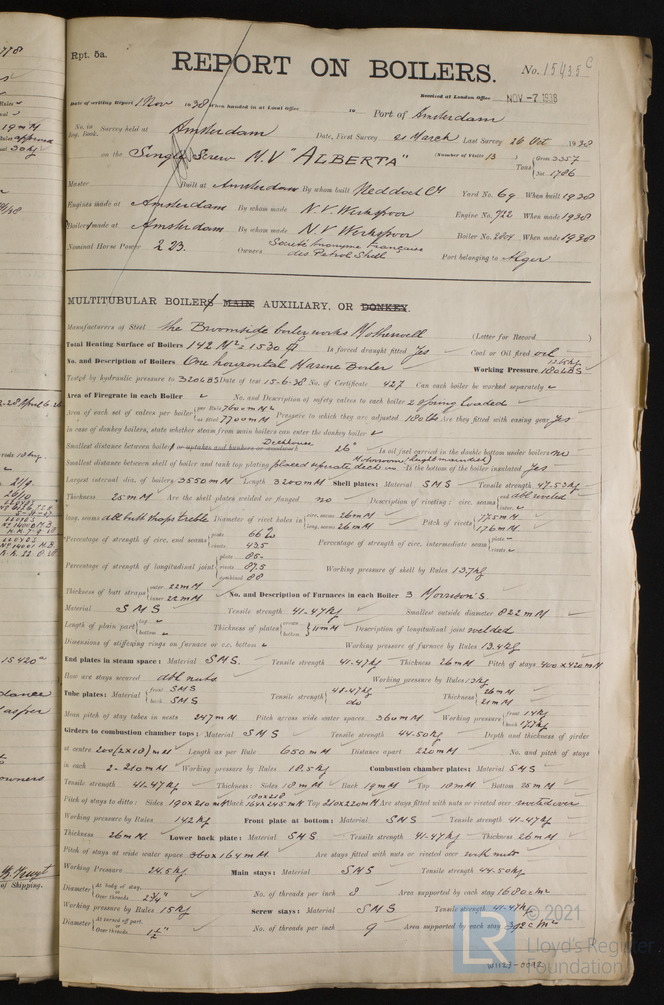 Rpt. 5a.
REPORT ON BOILERS.
No. 15435
Received at London Office NOV -7 1938
Date of writing Report 1 Nov 1938 When handed in at Local Office 19 Port of Amsterdam
No. in Reg. Book. Survey held at Amsterdam Date, First Survey 21 March Last Survey 26 Oct 1938
on the Single Screw M.V "ALBERTA" (Number of Visits 13) Tons Gross 3357 Net 1786
Master Built at Amsterdam By whom built Ned Dock Yard No. 69 When built 1938
Engines made at Amsterdam By whom made N.V. Werkspoor Engine No. 722 When made 1938
Boilers made at Amsterdam By whom made N.V. Werkspoor Boiler No. When made 1938
Nominal Horse Power 223. Owners Société Anonyme Française des Petrol Shell Port belonging to Alger
MULTITUBULAR BOILERS MAIN AUXILIARY, OR DONKEY.
Manufacturers of Steel the Broomside boiler works Motherwell (Letter for Record )
Total Heating Surface of Boilers 142 M² = 1530 Is forced draught fitted Yes Coal or Oil fired oil
No. and Description of Boilers One horizontal Marine Boiler Working Pressure 180 LBS
Tested by hydraulic pressure to 320 LBS Date of test 15-6-38 No. of Certificate 427 Can each boiler be worked separately
Area of Firegrate in each Boiler No. and Description of safety valves to each boiler 2 spring loaded
Area of each set of valves per boiler per Rule as fitted Pressure to which they are adjusted 180 lbs Are they fitted with easing gear Yes
In case of donkey boilers, state whether steam from main boilers can enter the donkey boiler
Smallest distance between boilers or uptakes and bunkers or woodwork Deckhouse 26" Is oil fuel carried in the double bottom under boilers no
Smallest distance between shell of boiler and tank top plating placed separate deck in Is the bottom of the boiler insulated Yes
Largest internal dia. of boilers 3550 mM Length 3200 mM Shell plates: Material SMS Tensile strength 47.53 kg
Thickness 25 mM Are the shell plates welded or flanged no Description of riveting: circ. seams end dbl riveted
long. seams dbl butt straps treble Diameter of rivet holes in circ. seams 26 mM long. seams 26 mM Pitch of rivets 77.5 mM 176 mM
Percentage of strength of circ. end seams plate 66 rivets 43.5 Percentage of strength of circ. intermediate seam plate rivets
Percentage of strength of longitudinal joint plate 85. rivets 87.5 combined 88 Working pressure of shell by Rules 13.7 kg
Thickness of butt straps outer 22 mM inner 22 mM No. and Description of Furnaces in each Boiler 3 Morrison's
Material SMS Tensile strength 41-47 kg Smallest outside diameter 822 mM
Length of plain part top bottom Thickness of plates crown bottom 11 mM Description of longitudinal joint welded
Dimensions of stiffening rings on furnace or c.c. bottom Working pressure of furnace by Rules 13.4 kg
End plates in steam space: Material SMS. Tensile strength 41-47 kg Thickness 26 mM Pitch of stays 400 x 420 mM
How are stays secured dbl nuts Working pressure by Rules 13 kg
Tube plates: Material front SMS back SMS Tensile strength 41-47 kg do Thickness 26 mM 21 mM
Mean pitch of stay tubes in nests 247 mM Pitch across wide water spaces 360 mM Working pressure front 14 kg back 17.7 kg
Girders to combustion chamber tops: Material SMS Tensile strength 44.50 kg Depth and thickness of girder
at centre 200(2x18) m Length as per Rule 650 mM Distance apart 220 mM No. and pitch of stays
in each 2-210 mM Working pressure by Rules 18.5 kg Combustion chamber plates: Material SMS
Tensile strength 41-47 kg Thickness: Sides 18 mM Back 19 mM Top 18 mM Bottom 25 mM
Pitch of stays to ditto: Sides 190 x 210 mM Back 164 x 245 mM Top 210 x 220 mM Are stays fitted with nuts or riveted over riveted over
Working pressure by Rules 14.2 kg Front plate at bottom: Material SMS Tensile strength 41-47 kg
Thickness 26 mM. Lower back plate: Material SMS. Tensile strength 41-47 kg Thickness 26 mM
Pitch of stays at wide water space 360 x 164 mM. Are stays fitted with nuts or riveted over with nuts
Working Pressure 24.5 kg Main stays: Material SMS Tensile strength 44.50 kg
Diameter At body of stay, or Over threads 2¾" No. of threads per inch 8 Area supported by each stay 1680 cm²
Working pressure by Rules 15 kg Screw stays: Material SMS Tensile strength 41-47 kg
Diameter At turned off part, or Over threads 1½" No. of threads per inch 9 Area supported by each stay 392 c m²
© 2021
LR
Lloyd's Register
Foundation
W1123-0092